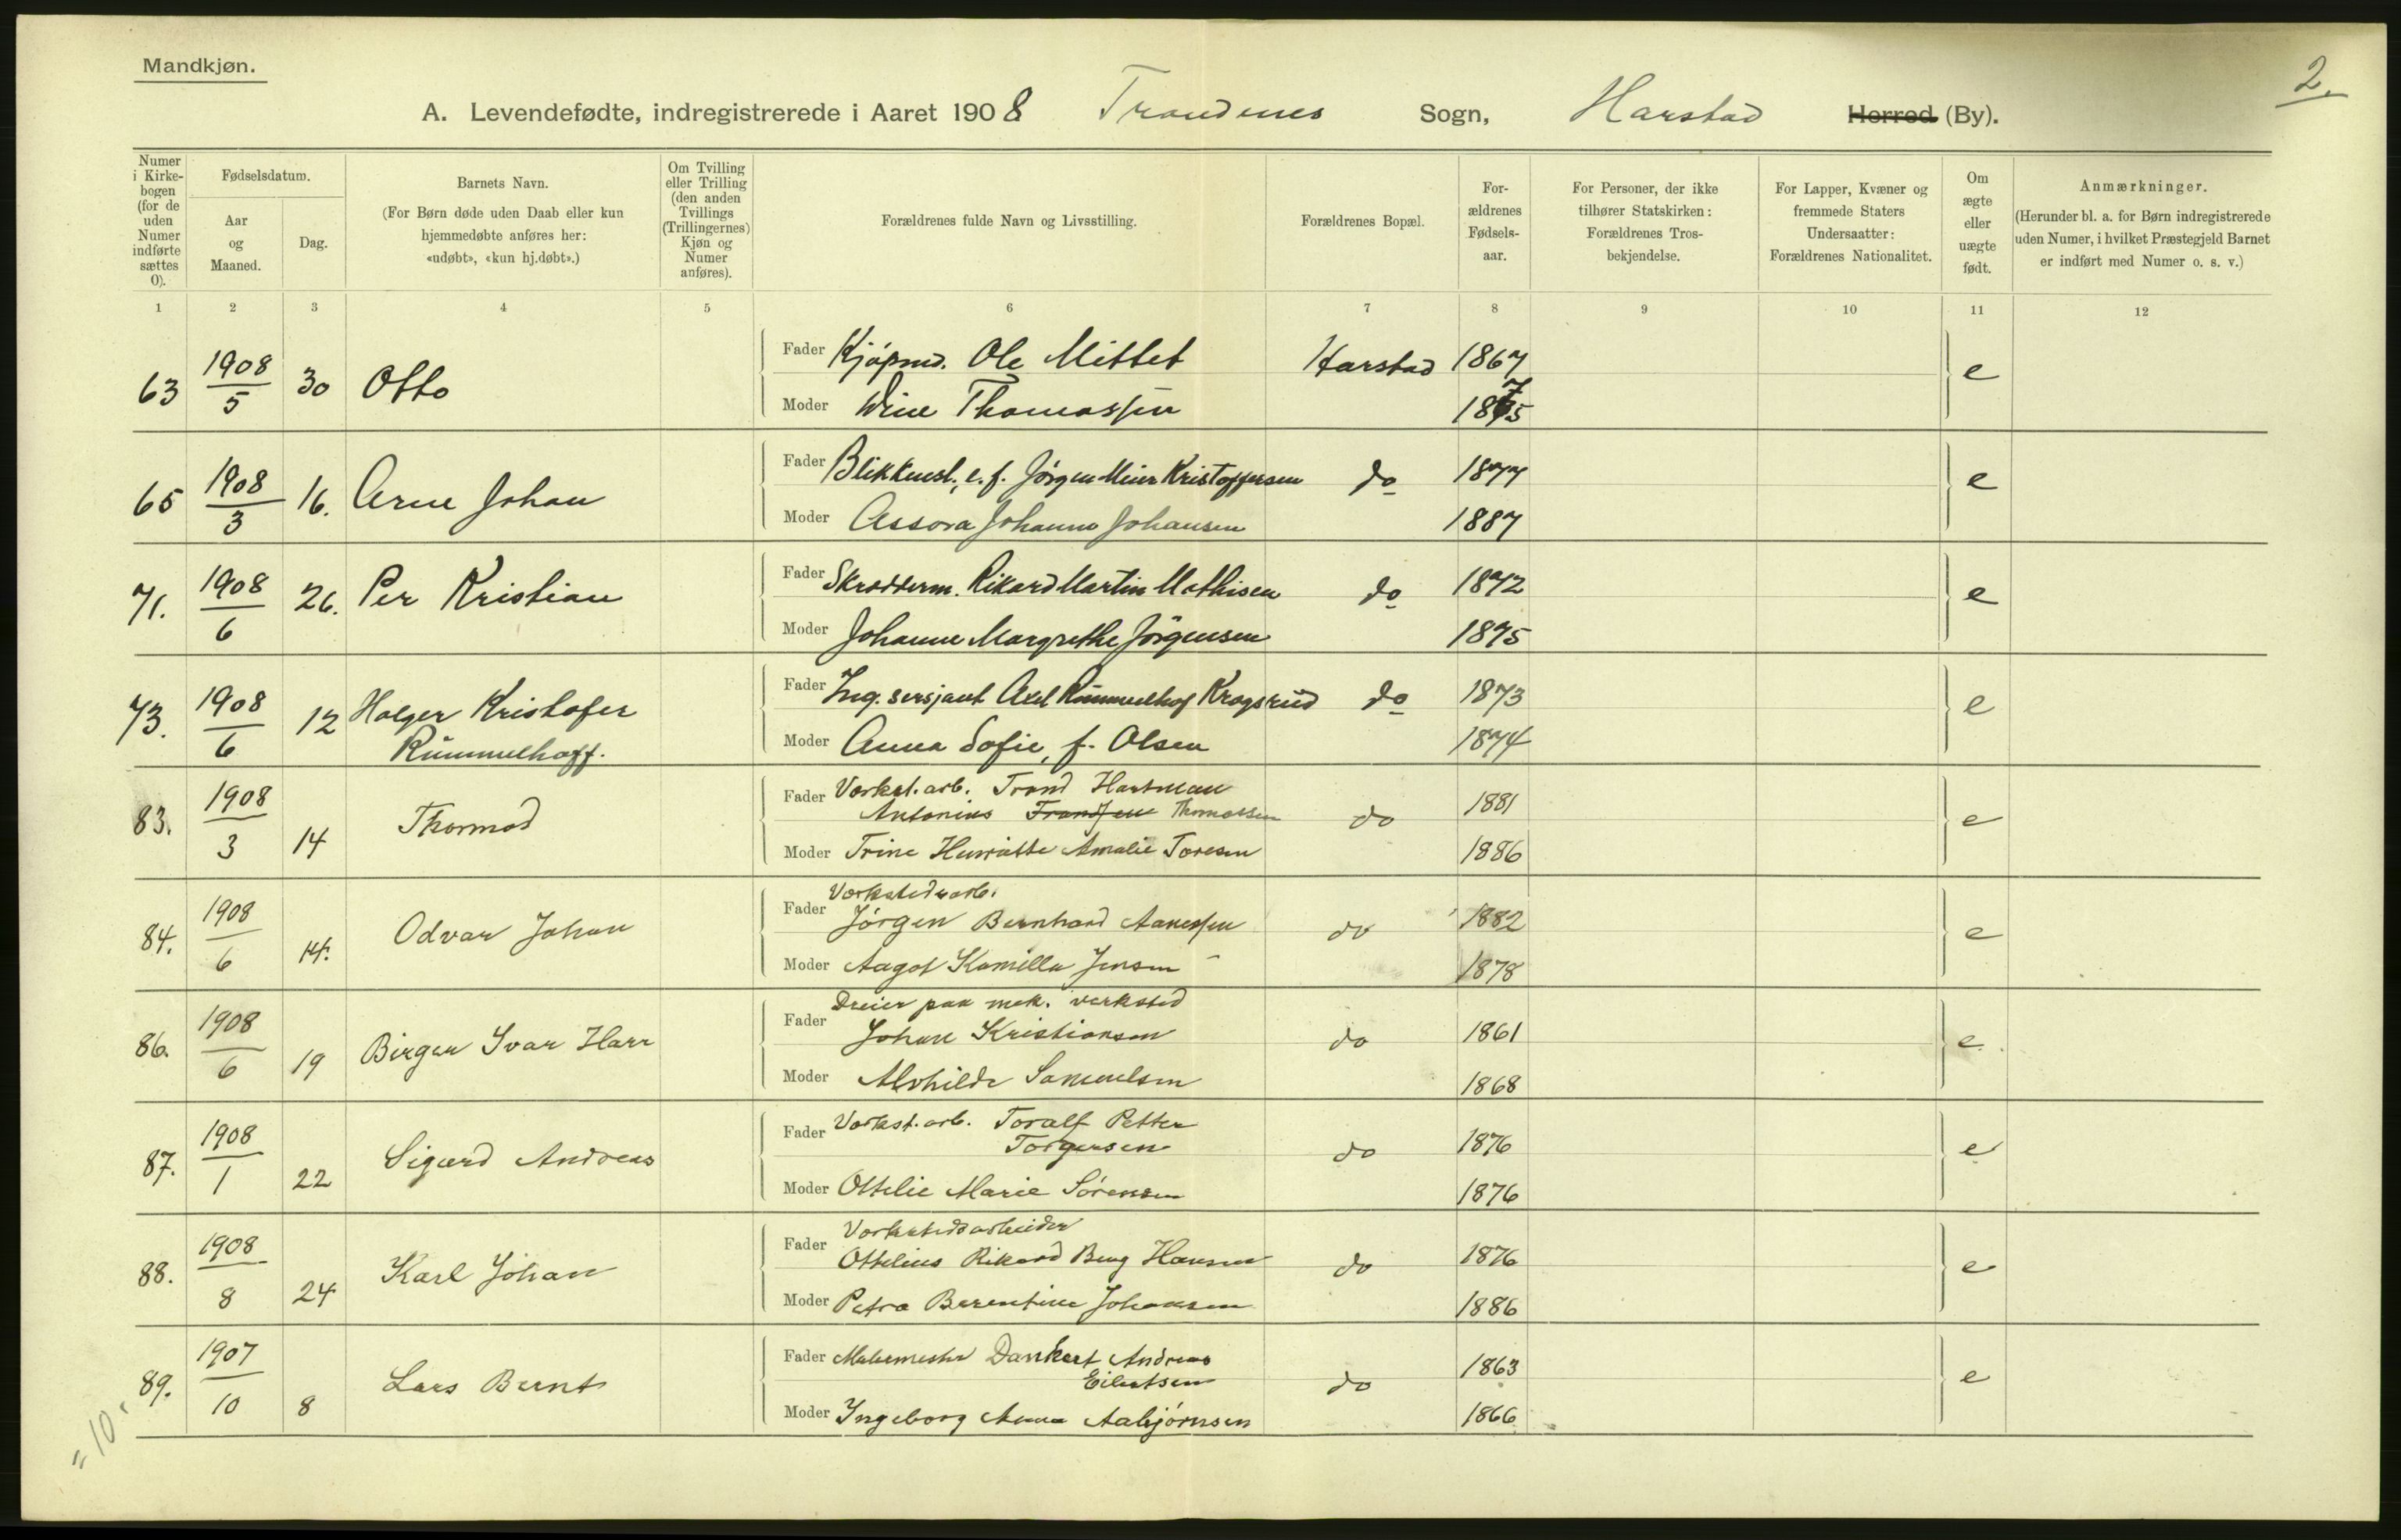 Mandkjøn.
2.
A. Levendefødte, indregistrerede i Aaret 1908 Trondenes Sogn, Harstad Herred (By).
Numer i Kirke-bogen (for de uden Numer indførte sættes 0).
Fødselsdatum.
Aar og Maaned.
Dag.
Barnets Navn.
(For Børn døde uden Daab eller kun hjemmedøbte anføres her: «udøbt», «kun hj.døbt».)
Om Tvilling eller Trilling (den anden Tvillings (Trillingernes) Kjøn og Numer anføres).
Forældrenes fulde Navn og Livsstilling.
Forældrenes Bopæl.
For-ældrenes Fødsels-aar.
For Personer, der ikke tilhører Statskirken: Forældrenes Tros-bekjendelse.
For Lapper, Kvæner og fremmede Staters Undersaatter: Forældrenes Nationalitet.
Om ægte eller uægte født.
Anmærkninger.
(Herunder bl. a. for Børn indregistrerede uden Numer, i hvilket Præstegjeld Barnet er indført med Numer o. s. v.)
1 2 3 4 5 6 7 8 9 10 11 12
63 1908/5 30 Otto Fader Kjøpmd. Ole Mittet Harstad 1867 e
Moder Wine Thomassen 1875
65 1908/3 16. Arne Johan Fader Blikkensl., e. f. Jörgen Meier Kristoffersen do 1877 e
Moder Assora Johanne Johansen 1887
71. 1908/6 26. Per Kristian Fader Skrædderm. Rikard Martin Mathisen do 1872 e
Moder Johanne Margrethe Jörgensen 1875
73. 1908/6 12 Holger Kristofer Fader Ing. sersjant Axel Rümmelhof Krogsrud do 1873 e
Rümmelhoff. Moder Anna Sofie, f. Olsen 1874
83. 1908/3 14 Thormod Fader Verkst. arb. Trond Hartman
Antonius Frantzen Thomassen do 1881 e
Moder Trine Henriette Amalie Toresen 1886
84. 1908/6 14. Odvar Johan Fader Verkstedsarb.
Jörgen Bernhard Aanessen do 1882 e
Moder Aagot Kamilla Jensen 1878
86. 1908/6 19 Birger Ivar Harr Fader Dreier paa mek. verksted
Johan Kristiansen do 1861 e
Moder Alvhilde Samuelsen 1868
87. 1908/1 22 Sigurd Andreas Fader Verkst. arb. Toralf Petter
Torgersen do 1876 e
Moder Ottelie Marie Sörensen 1876
88. 1908/8 24 Karl Johan Fader Verkstedsarbeider
Ottelius Rikard Berg Hansen do 1876 e
Moder Petra Berentine Johansen 1886
89. 1907/10 8 Lars Bernt Fader Malermester Dankert Andreas
Eilertsen do 1863 e
Moder Ingeborg Anna Asbjörnsen 1866
"10"